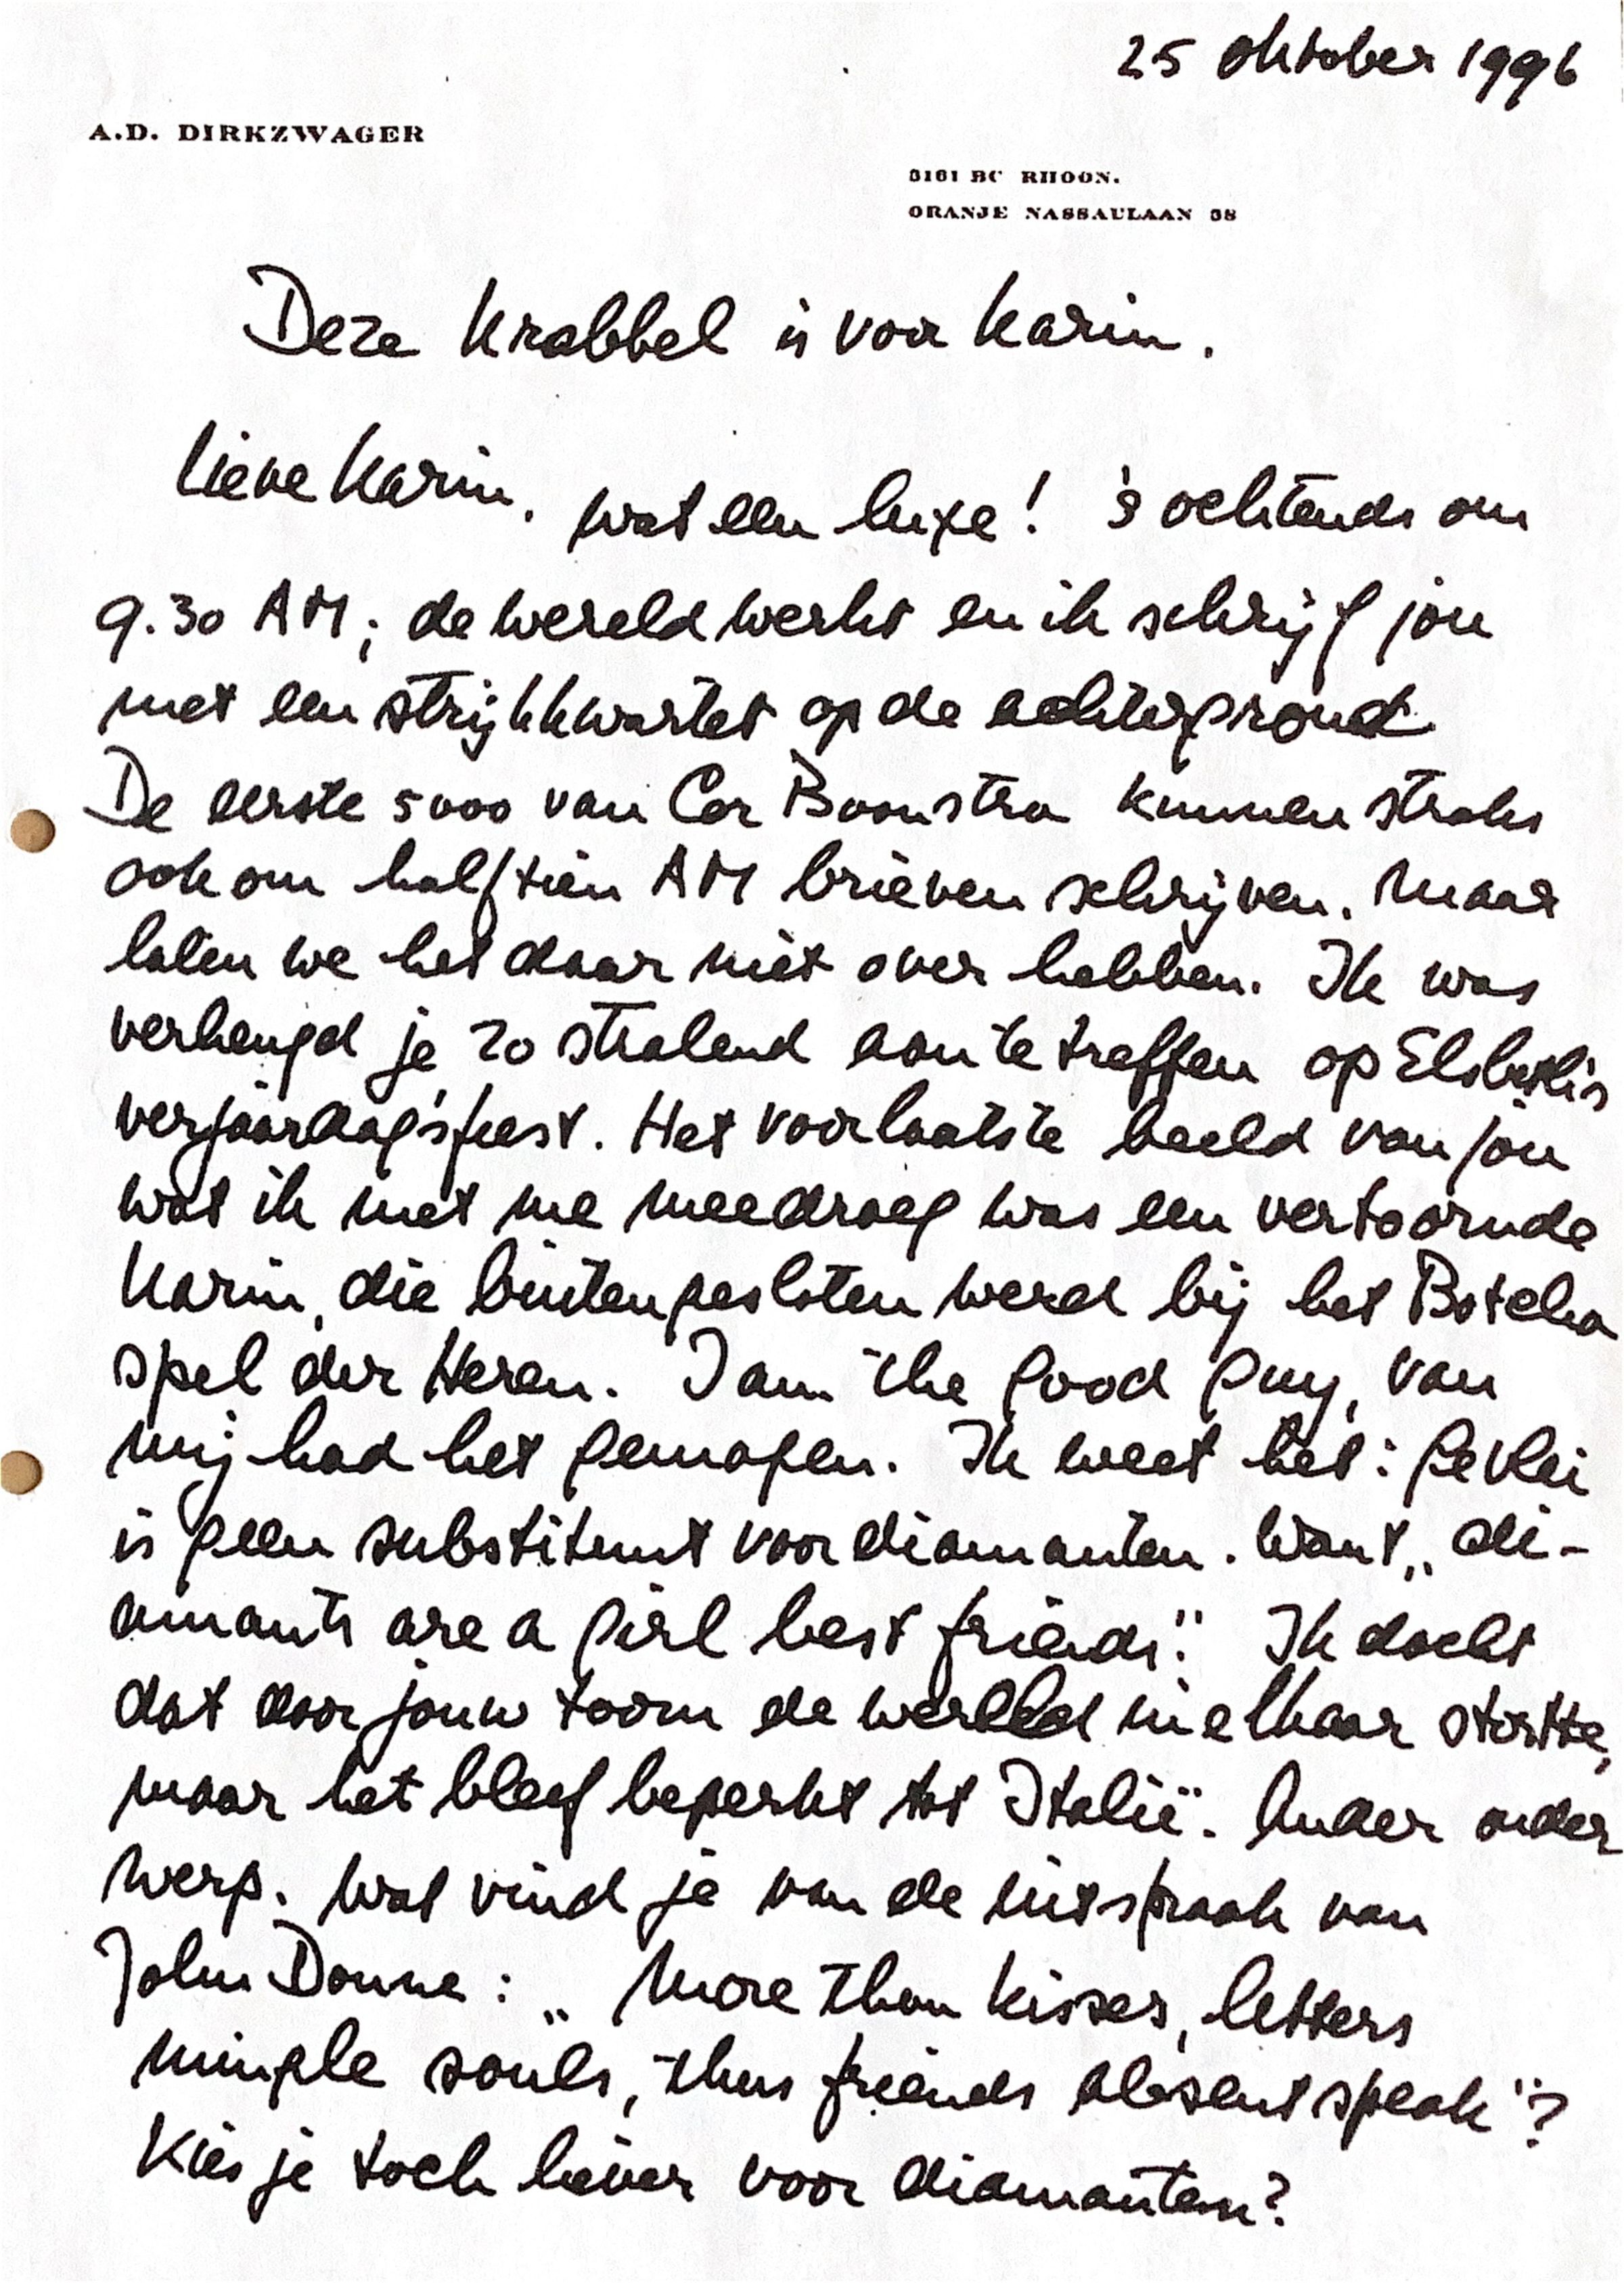 25 oktober 1996
A.D. DIRKZWAGER
3161 BC RHOON.
ORANJE NASSAULAAN 38
Deze krabbel is voor Karin.
Lieve Karin, wat een luxe! 's ochtends om
9.30 AM; de wereld werkt en ik schrijf jou
met een strijkkwartet op de achtergrond
De eerste 5000 van Cor Boonstra kunnen straks
ook om half tien AM brieven schrijven. Maar
laten we het daar niet over hebben. Ik was
verheugd je zo stralend aan te treffen op Elsbeth's
verjaardagsfeest. Het voorlaatste beeld van jou
wat ik met me meedroeg was een vertoornde
Karin, die buitengesloten werd bij het Botcha
spel der Heren. I am the good guy, van
mij had het gemogen. Ik weet het: gevlei
is geen substituut voor diamanten. Want „di-
amants are a girl best friends". Ik dacht
dat door jouw toorn de wereld in elkaar stortte,
maar het bleef beperkt tot Italië. Ander onder
werp. Wat vind je van de uitspraak van
John Donne: „More than kisses, letters
mingle souls, thus friends absent speak"?
Kies je toch liever voor diamanten?